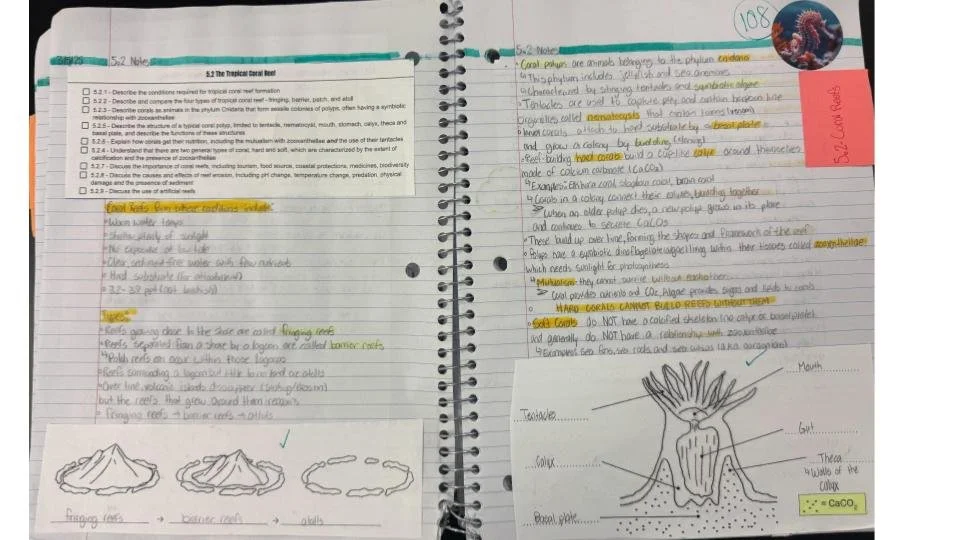 5.2 Notes
5.2 The Tropical Coral Reef
5.2.1 - Describe the conditions required for tropical coral reef formation
5.2.2 - Describe and compare the four types of tropical coral reef - fringing, barrier, patch, and atoll
5.2.3 - Describe corals as animals in the phylum Cnidaria that form sessile colonies of polyps, often having a symbiotic
relationship with zooxanthellae
5.2.5 - Describe the structure of a typical coral polyp, limited to tentacle, nematocyst, mouth, stomach, calyx, theca and
basal plate, and describe the functions of these structures
5.2.6 - Explain how corals get their nutrition, including the mutualism with zooxanthellae and the use of their tentacles
5.2.4 - Understand that there are two general types of coral, hard and soft, which are characterized by the amount of
calcification and the presence of zooxanthellae
5.2.7 - Discuss the importance of coral reefs, including tourism, food source, coastal protections, medicines, biodiversity
5.2.8 - Discuss the causes and effects of reef erosion, including pH change, temperature change, predation, physical
damage and the presence of sediment
5.2.9 - Discuss the use of artificial reefs
Coral Reefs form where conditions include:
Warm water temps
Shallow, plenty of sunlight
No exposure at low tide
Clear, sediment free water with few nutrients
Hard substrate (for attachment)
Types:
Reefs growing close to the shore are called fringing reefs
Reefs separated from a shore by a lagoon are called barrier reefs
Patch reefs can occur within those lagoons
Reefs surrounding a lagoon but little to no land are atolls
Over time, volcanic islands disappear
but the reefs that grew around them remain
fringing reefs → barrier reefs → atolls
fringing reefs → barrier reefs → atolls
108
5.2 Notes
Coral polyps are animals belonging to the phylum cnidaria
This phylum includes jellyfish and sea anemones
Characterized by stinging tentacles and symbiotic algae
Tentacles are used to capture prey and contain
organelles called nematocysts that contain toxins (venom)
corals attach to hard substrate by a basal plate
and grow a colony by budding (cloning)
Reef-building hard corals build a cup-like calyx around themselves
made of calcium carbonate (CaCO3)
Examples: Elkhorn coral, staghorn coral, brain coral
Corals in a colony connect their calyxes, building together
When an older polyp dies, a new polyp grows in its place
and continues to secrete CaCO3
These build up over time, forming the shapes and framework of the reef
Polyps have a symbiotic dinoflagellate algae living within their tissues called zooxanthellae
which needs sunlight for photosynthesis
Mutualism - they cannot survive without each other
Coral provides nutrients and CO2, Algae provides sugars and lipids to corals
HARD CORALS CANNOT BUILD REEFS WITHOUT THEM
Soft Corals do NOT have a calcified skeleton (no calyx or basal plate)
and generally do NOT have a relationship with zooxanthellae
Examples: sea fans, sea rods, and sea whips
5.2 - Coral Reefs
Mouth
Tentacles
Gut
Calyx
Theca
Walls of the
calyx
= CaCO3
Basal plate